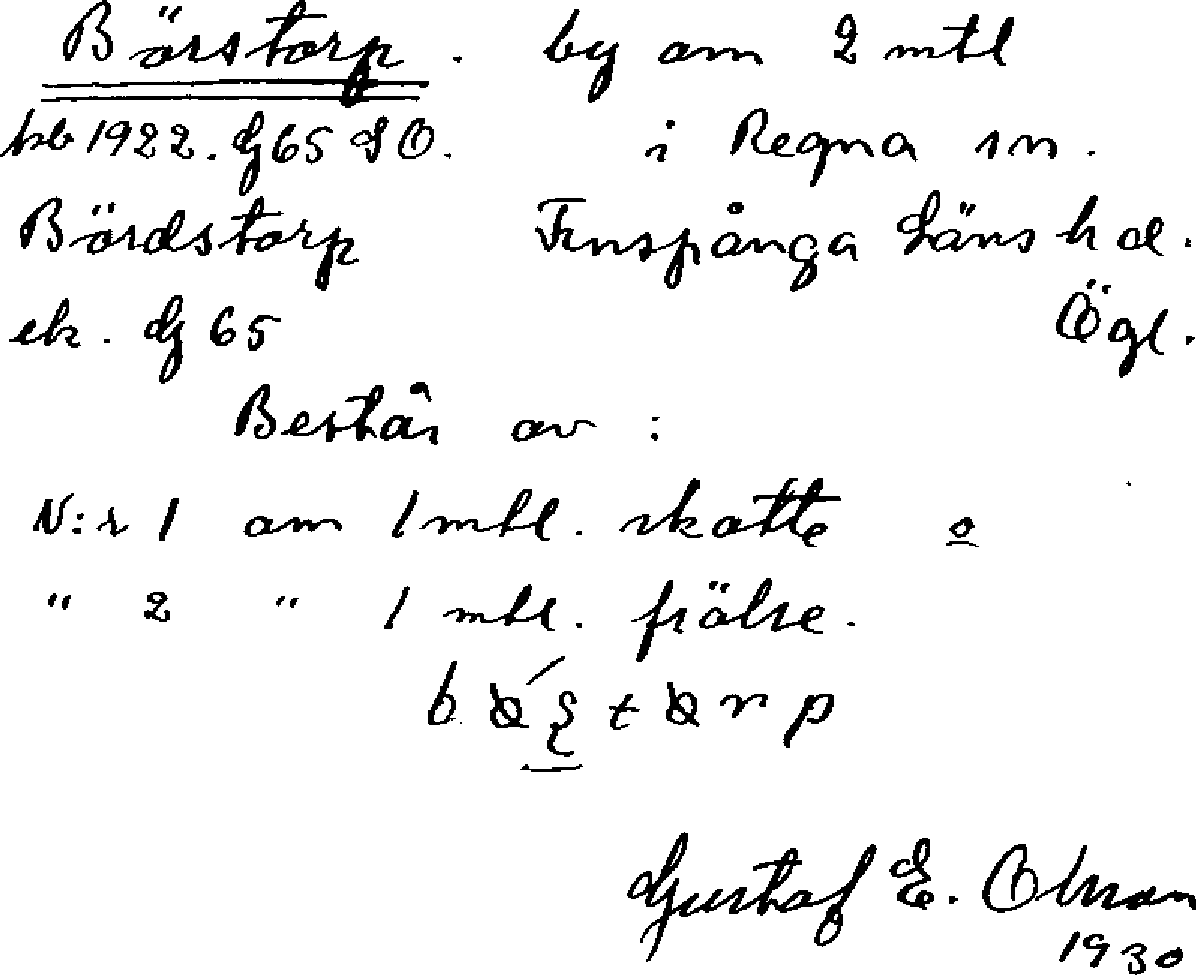 Börstorp. by om 2 mtl
kb 1922. Gj 65 SO. i Regna sn.
Bördstorp Finspånga läns hd.
ek. Gj 65 Ögl.
Består av:
N:r 1 om 1 mtl. skatte o
" 2 " 1 mtl. frälse.
Gustaf E. Olsson
1930